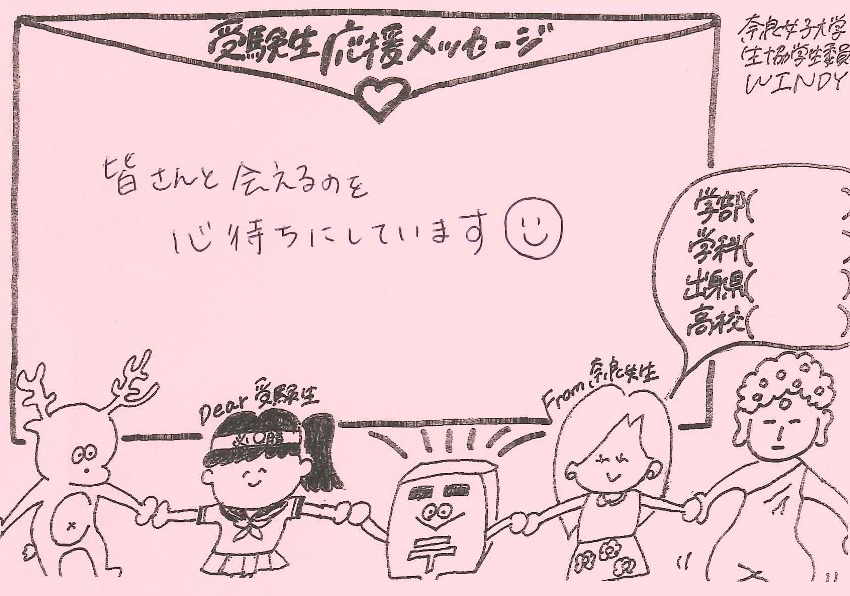 受験生応援メッセージ
奈良女子大学
生協学生委員
WINDY
皆さんと会えるのを
心待ちにしています
学部(      )
学科(      )
出身県(      )
高校(      )
Dear 受験生
From 奈良女生
必勝
〒